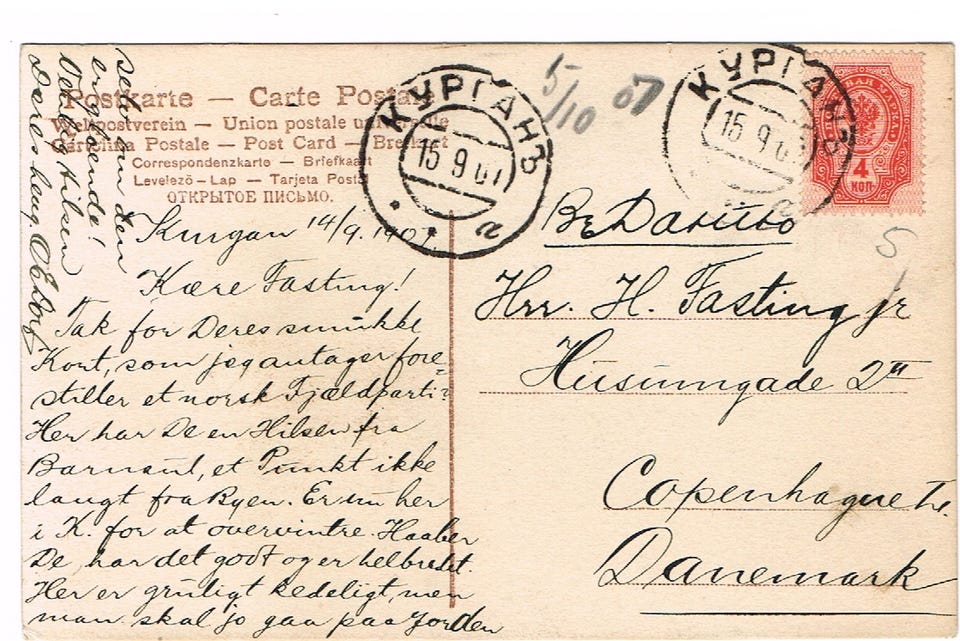 Postkarte — Carte Postale
Weltpostverein — Union postale universelle
Cartolina Postale — Post Card — Brefkort
Correspondenzkarte — Briefkaart
Levelező-Lap — Tarjeta Postal
ОТКРЫТОЕ ПИСЬМО.
КУРГАНЪ
15 9 07
КУРГАНЪ
15 9 07
5/10 07
4
КОП
5
Kurgan 14/9. 1907.
Kære Fasting!
Tak for Deres smukke
Kort, som jeg antager fore=
stiller et norsk Fjældparti?
Her har De en Hilsen fra
Barnaul, et Punkt ikke
langt fra Byen. Er nu her
i K. for at overvintre. Haaber
De har det godt og er helbredet.
Her er gruligt kedeligt, men
man skal jo gaa paa Jorden
saa den
endda!
Hilsen
Deres heng.
Hrr. H. Fasting jr
Husumgade 2
Copenhague
Danemark